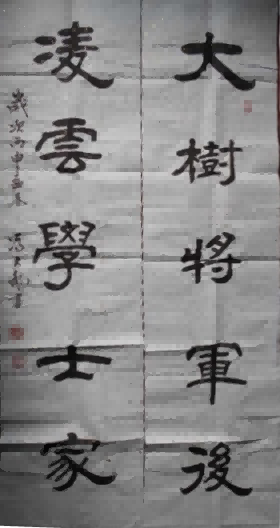 大樹將軍後
凌雲學士家
歲次丙申
書